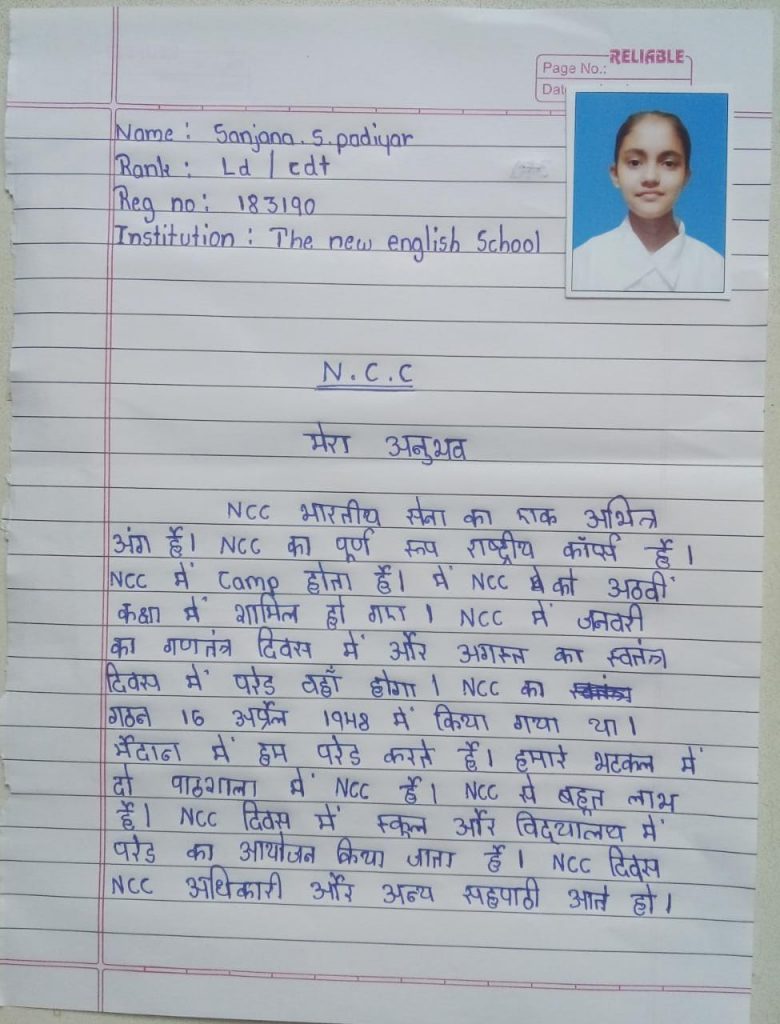 RELIABLE
Page No.:
Dat
Name : Sanjana.S.padiyar
Rank : Ld / cdt
Reg no : 183190
Institution : The new english School
N.C.C
मेरा अनुभव
NCC भारतीय सेना का एक अभिन्न
अंग हैं। NCC का पूर्ण रूप राष्ट्रीय कॉर्प्स हैं।
NCC में Camp होता हैं। में NCC को अठवीं
कक्षा में शामिल हो गए। NCC में जनवरी
का गणतंत्र दिवस में और अगस्त का स्वतंत्र
दिवस में परेड वहाँ होगा। NCC का स्वतंत्र
गठन 16 अर्प्रेल 1948 में किया गया था।
मैदान में हम परेड करते हैं। हमारे भटकल में
दो पाठशाला में NCC हैं। NCC से बहूत लाभ
हैं। NCC दिवस में स्कूल और विद्यालय में
परेड का आयोजन किया जाता हैं। NCC दिवस
NCC अधिकारी और अन्य सहपाठी आते हो।